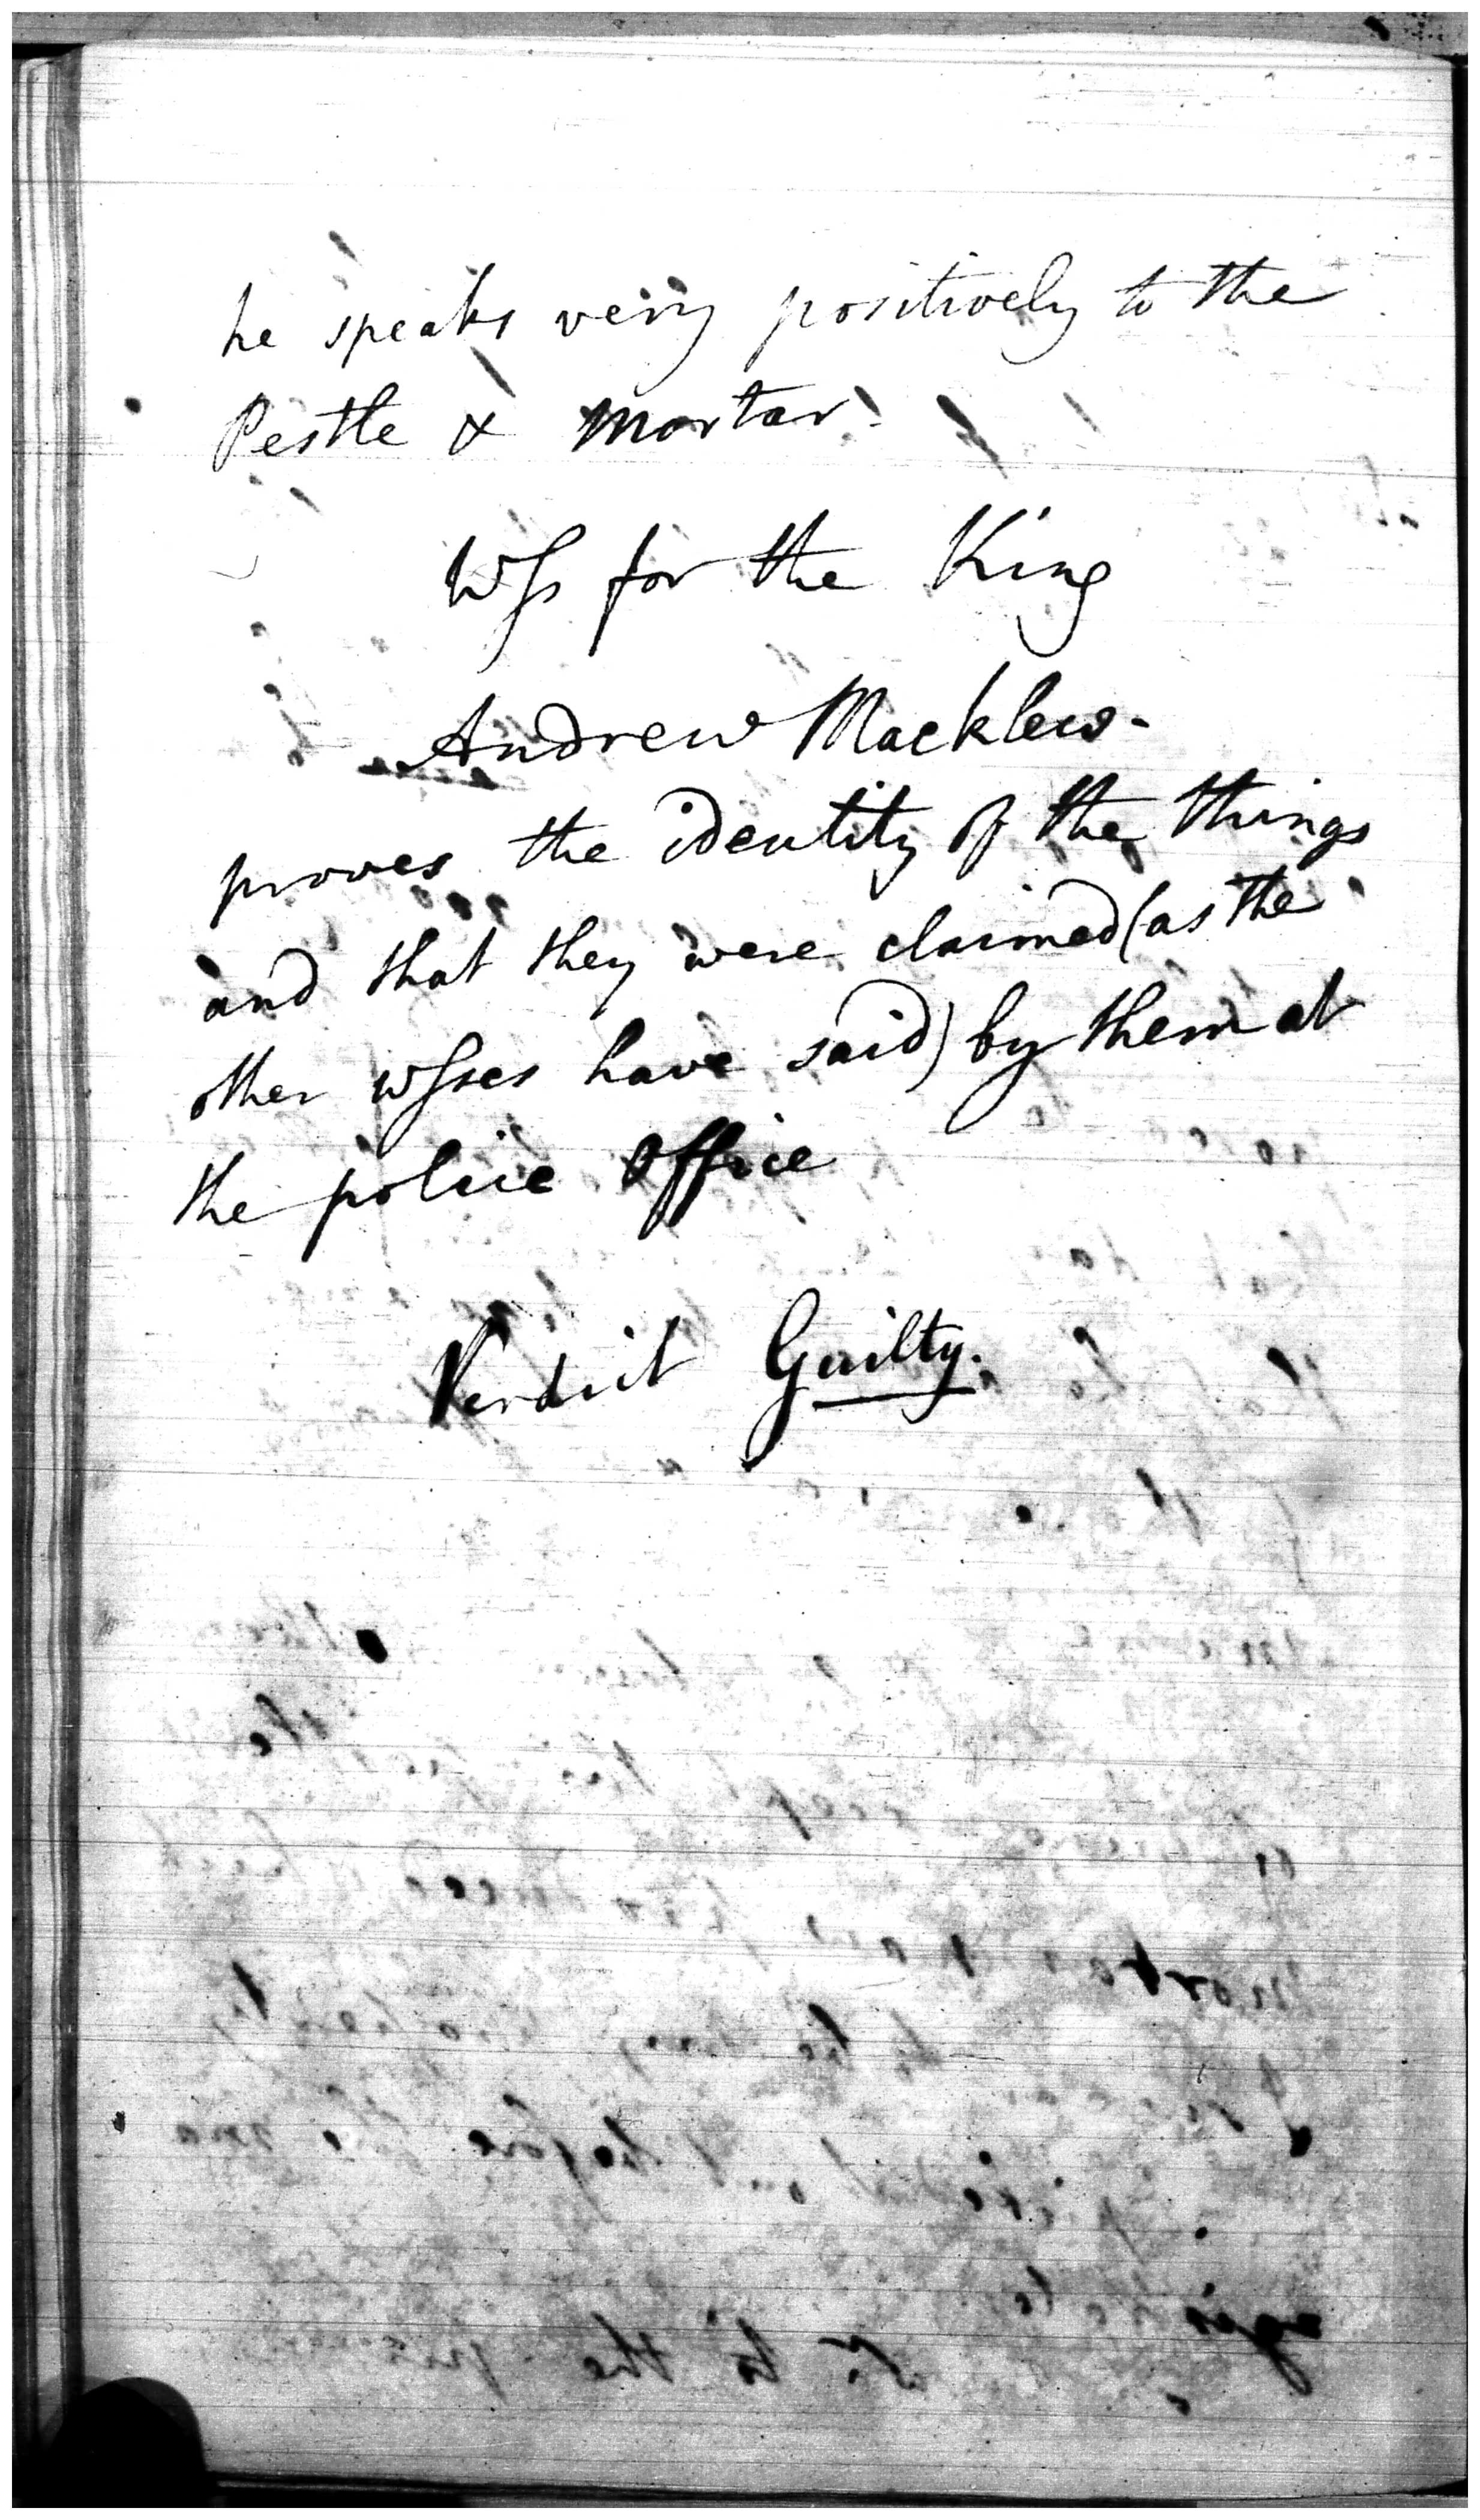 he speaks very positively to the
Pestle & Mortar.
Wſs for the King
Andrew Macklew-
proves the identity of the things
and that they were claimed (as the
other wſses have said) by them at
the police Office
Verdict Guilty.